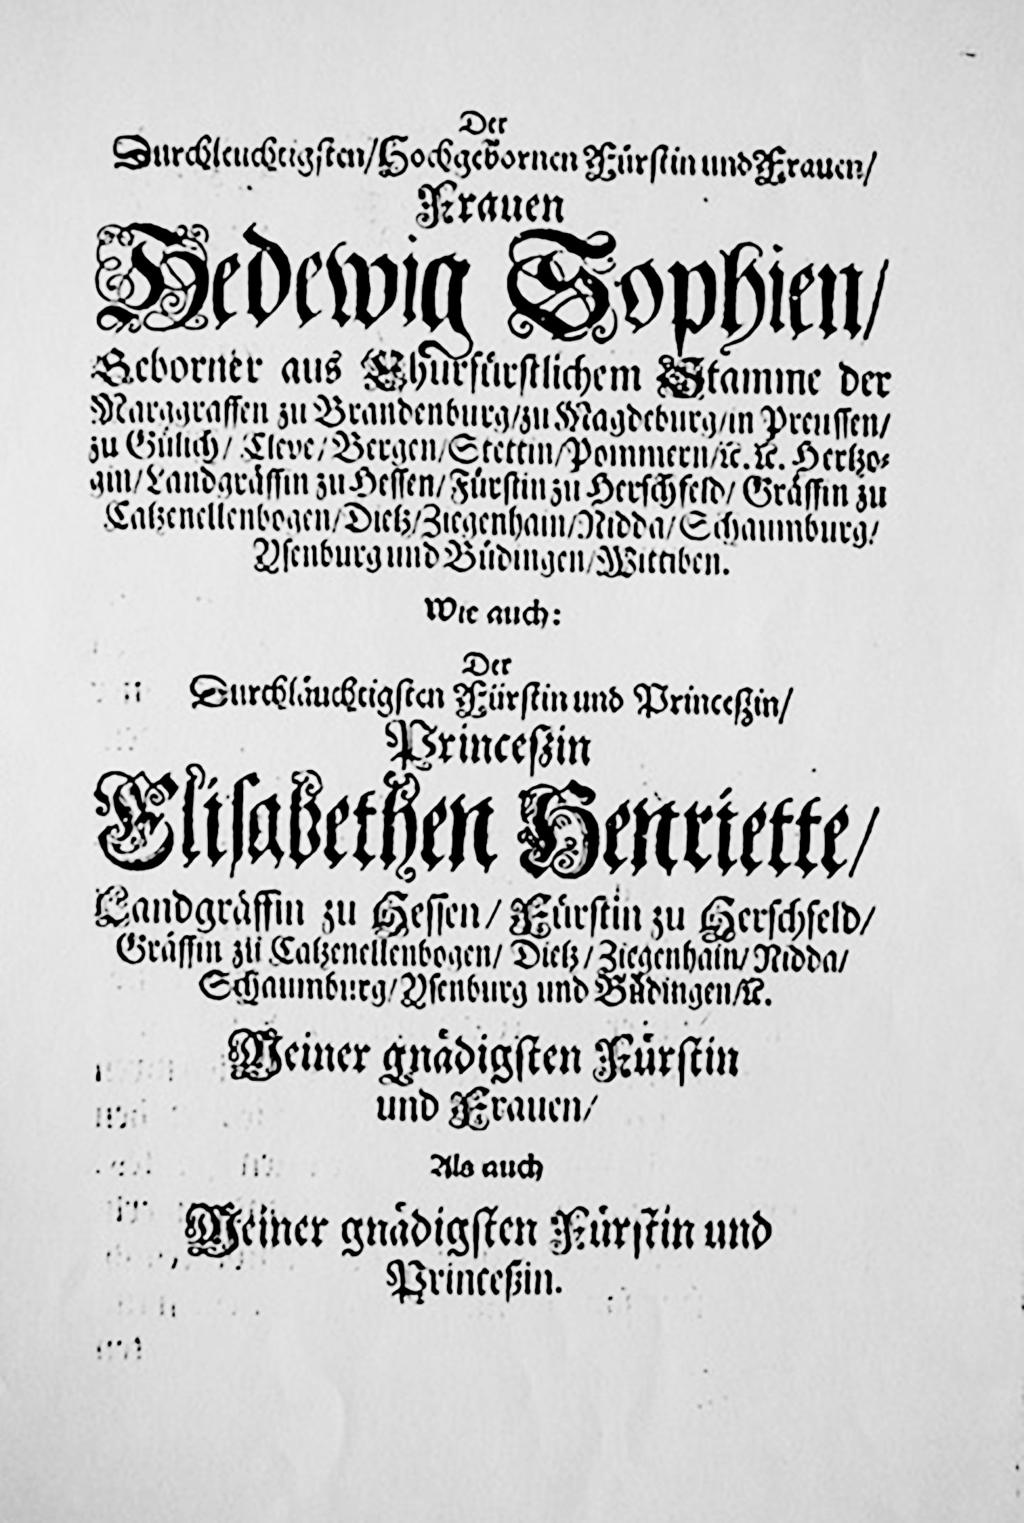 Der
Durchleuchtigsten/Hochgebornen Fürstin und Frauen/
Frauen
Hedewig Sophien/
Geborner aus Churfürstlichem Stamme der
Marggraffen zu Brandenburg/zu Magdeburg/in Preussen/
zu Gülich/ Cleve/ Bergen/Stettin/Pommern/ꝛc.ꝛc. Hertzo-
gin/Landgräffin zu Hessen/Fürstin zu Herschfeld/ Gräffin zu
Catzenellenbogen/Dietz/Ziegenhain/Nidda/Schaumburg/
Ysenburg und Büdingen/Wittiben.
Wie auch:
Der
Durchläuchtigsten Fürstin und Princeßin/
Princeßin
Elisabethen Henriette/
Landgräffin zu Hessen/ Fürstin zu Herschfeld/
Gräffin zu Catzenellenbogen/ Dietz/Ziegenhain/Nidda/
Schaumburg/Ysenburg und Büdingen/ꝛc.
Meiner gnädigsten Fürstin
und Frauen/
Als auch
Meiner gnädigsten Fürstin und
Princeßin.